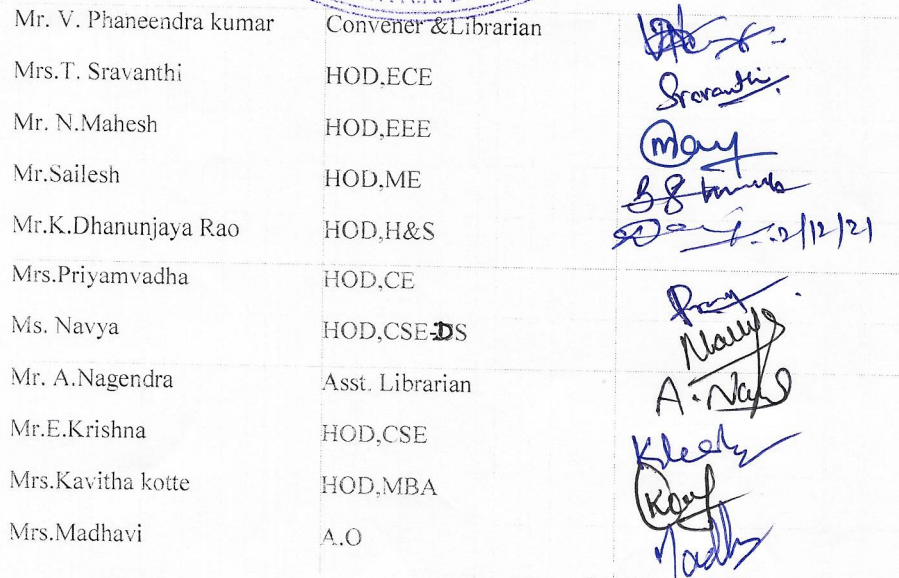 Mr. V. Phaneendra kumar Convener &Librarian
Mrs.T. Sravanthi HOD,ECE Sravanthi
Mr. N.Mahesh HOD,EEE
Mr.Sailesh HOD,ME
Mr.K.Dhanunjaya Rao HOD,H&S 2/12/21
Mrs.Priyamvadha HOD,CE
Ms. Navya HOD,CSE-DS
Mr. A.Nagendra Asst. Librarian
Mr.E.Krishna HOD,CSE
Mrs.Kavitha kotte HOD,MBA
Mrs.Madhavi A.O